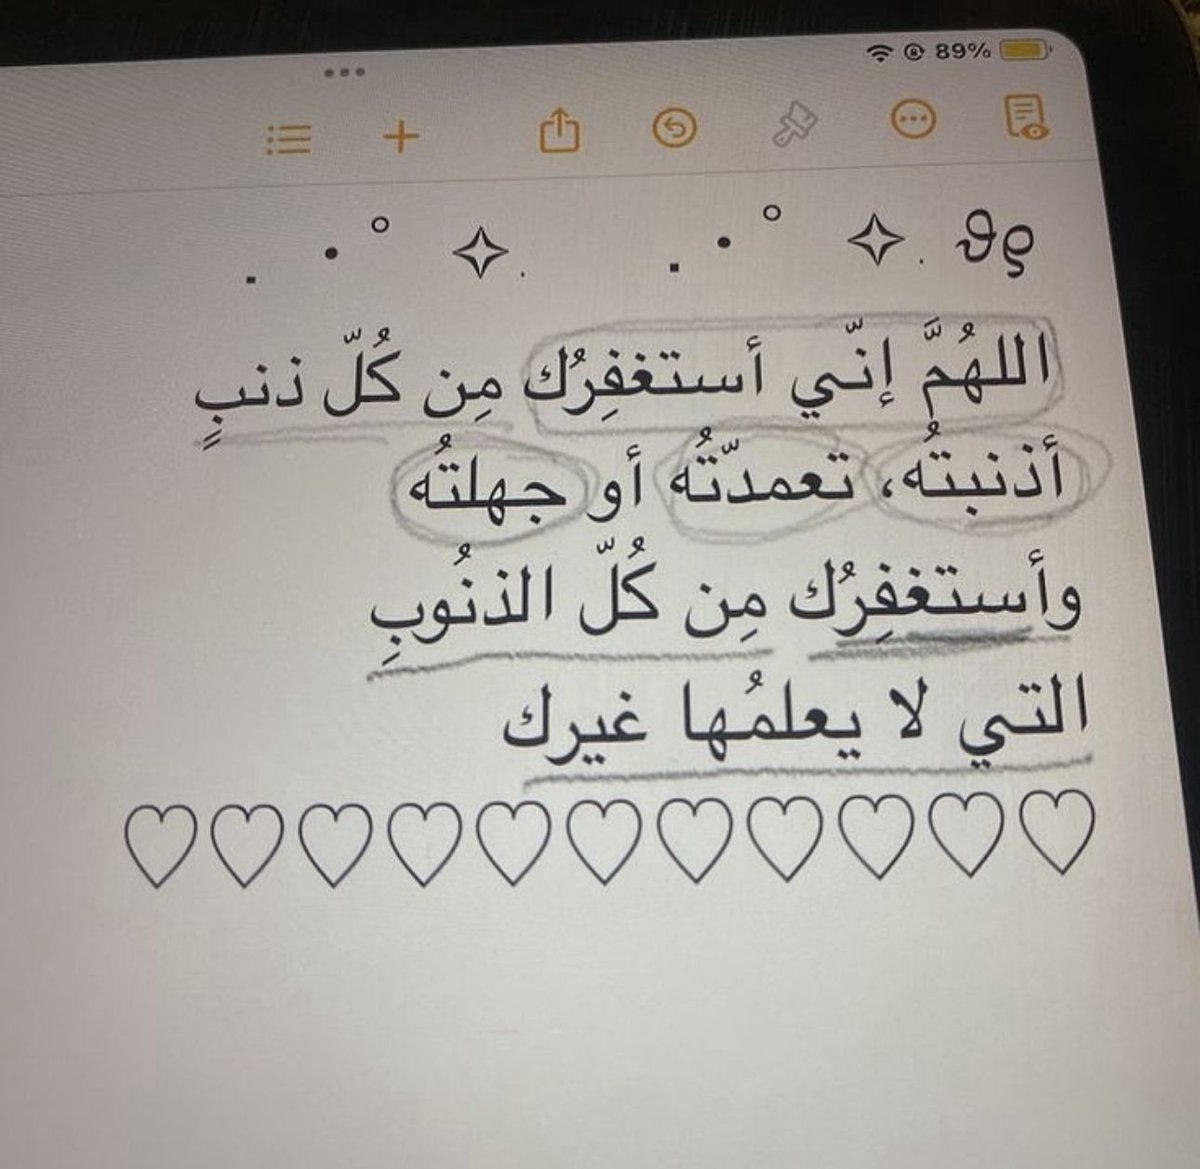 89%
اللهُمَّ إنّي أستغفِرُك مِن كُلّ ذنبٍ
أذنبتُه، تعمدّتُه أو جهلتُه
وأستغفِرُك مِن كُلّ الذنُوبِ
التي لا يعلمُها غيرك
♡♡♡♡♡♡♡♡♡♡♡